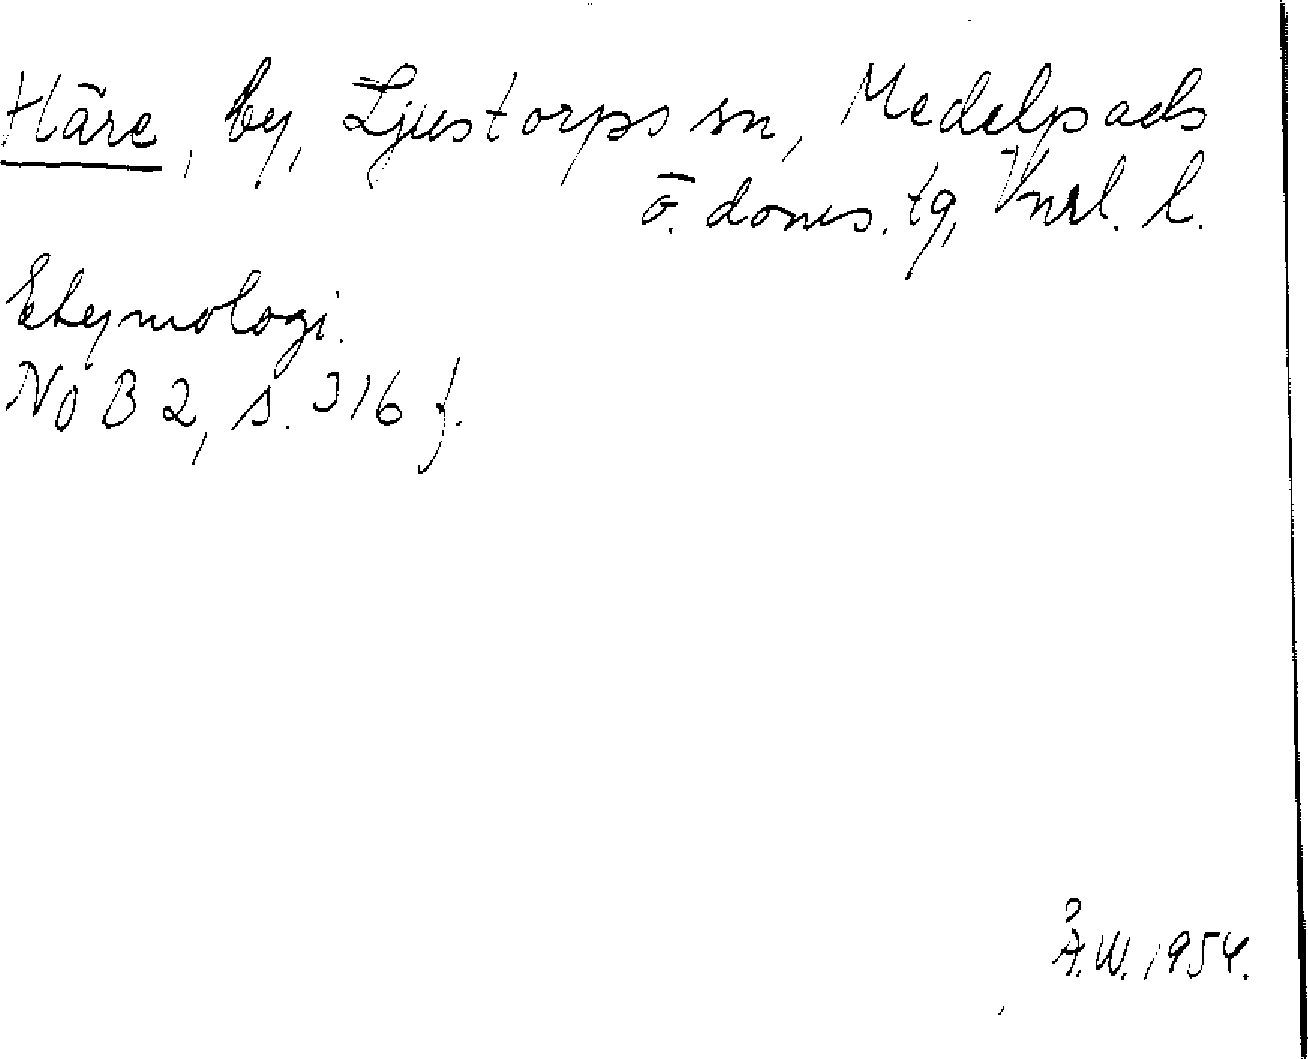 Häre, by, Ljustorps sn, Medelpads
ö. doms. tg, Vnrl. l.
Etymologi.
NoB 2, s. 316 f.
Å.W. 1954.